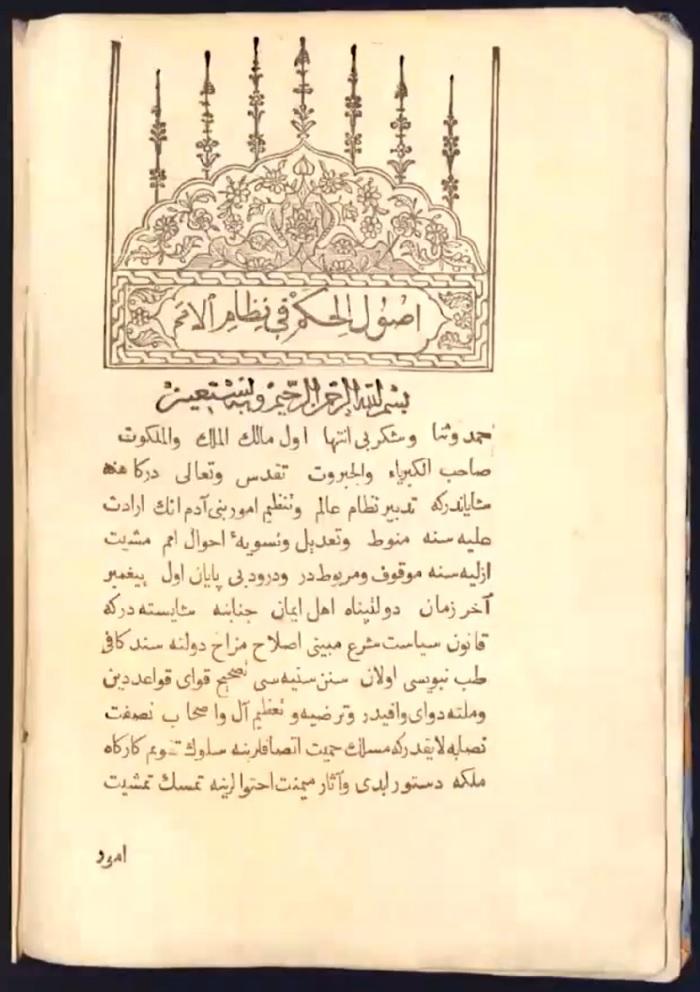 اصول الحكم في نظام الامم
بسم الله الرحمن الرحيم وبه نستعين
حمد وثنا وشكر بی انتها اول مالك الملك والملكوت
صاحب الكبرياء والجبروت تقدس وتعالى دركاهنه
شاياندركه تدبير نظام عالم وتنظيم امور بنی آدم انك ارادت
عليه سنه منوط وتعديل وتسويهٔ احوال امم مشيت
ازليه سنه موقوف ومربوطدر ودرود بی پايان اول پيغمبر
آخر زمان دولتپناه اهل ايمان جنابنه شايسته دركه
قانون سياست شرع مبينی اصلاح مزاج دولته سند كافی
طب نبويسی اولان سنن سنيه سی تصحيح قوای قواعد دين
وملته دوای وافيدر وترضيه و تعظيم آل واصحاب نصفت
نصابه لايقدركه مسلك حميت اتصافلرينه سلوك تقويم كاركاه
ملكه دستور ابدی وآثار ميمنت احتوالرينه تمسك تمشيت
امور